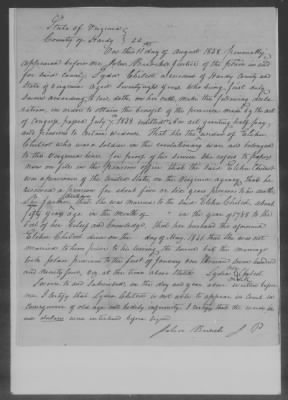 State of Virginia
County of Hardy
On this 11 day of August 1838 personally
appeared before me John a Justice of the peace in and
for said County Lydia Chilcot a resident of Hardy County and
State of Virginia Aged Seventy eight years who being first duly
Sworn according to law, doth, on her oath, make the following decla-
ration, in order to obtain the benefit of the provision made by the act
of Congress passed July 7, 1838 entitled An act granting half pay
and pensions to certain widows That she is the widow of Elihu
Chilcot who was a soldier in the revolutionary war and belonged
to the Virginia line. For proof of his service She refers to papers
now on file in the pension office that the said Elihu Chilcot
was a pensioner of the United State, in the Virginia Agency, that he
received a pension for about five or six years previous to his death
She further that she was married to the said Elihu Chilcot about
years ago in the month of in the year of to the
best of her belief and knowledge, that her husband the aforesaid
Elihu Chilcot died on the day of May 1831 that she was not
married to him prior to his leaving the service but the marriage
took place previous to the first of January one thousand seven hundred
and ninety four, viz at the time above stated Lydia her mark Chilcot
Sworn to and Subscribed on the day and year above written before
me I certify that Lydia Chilcot is not able to appear in Court in
consequence of old age and bodily infirmity, I certify that the words
and were interlined before signed
John J P